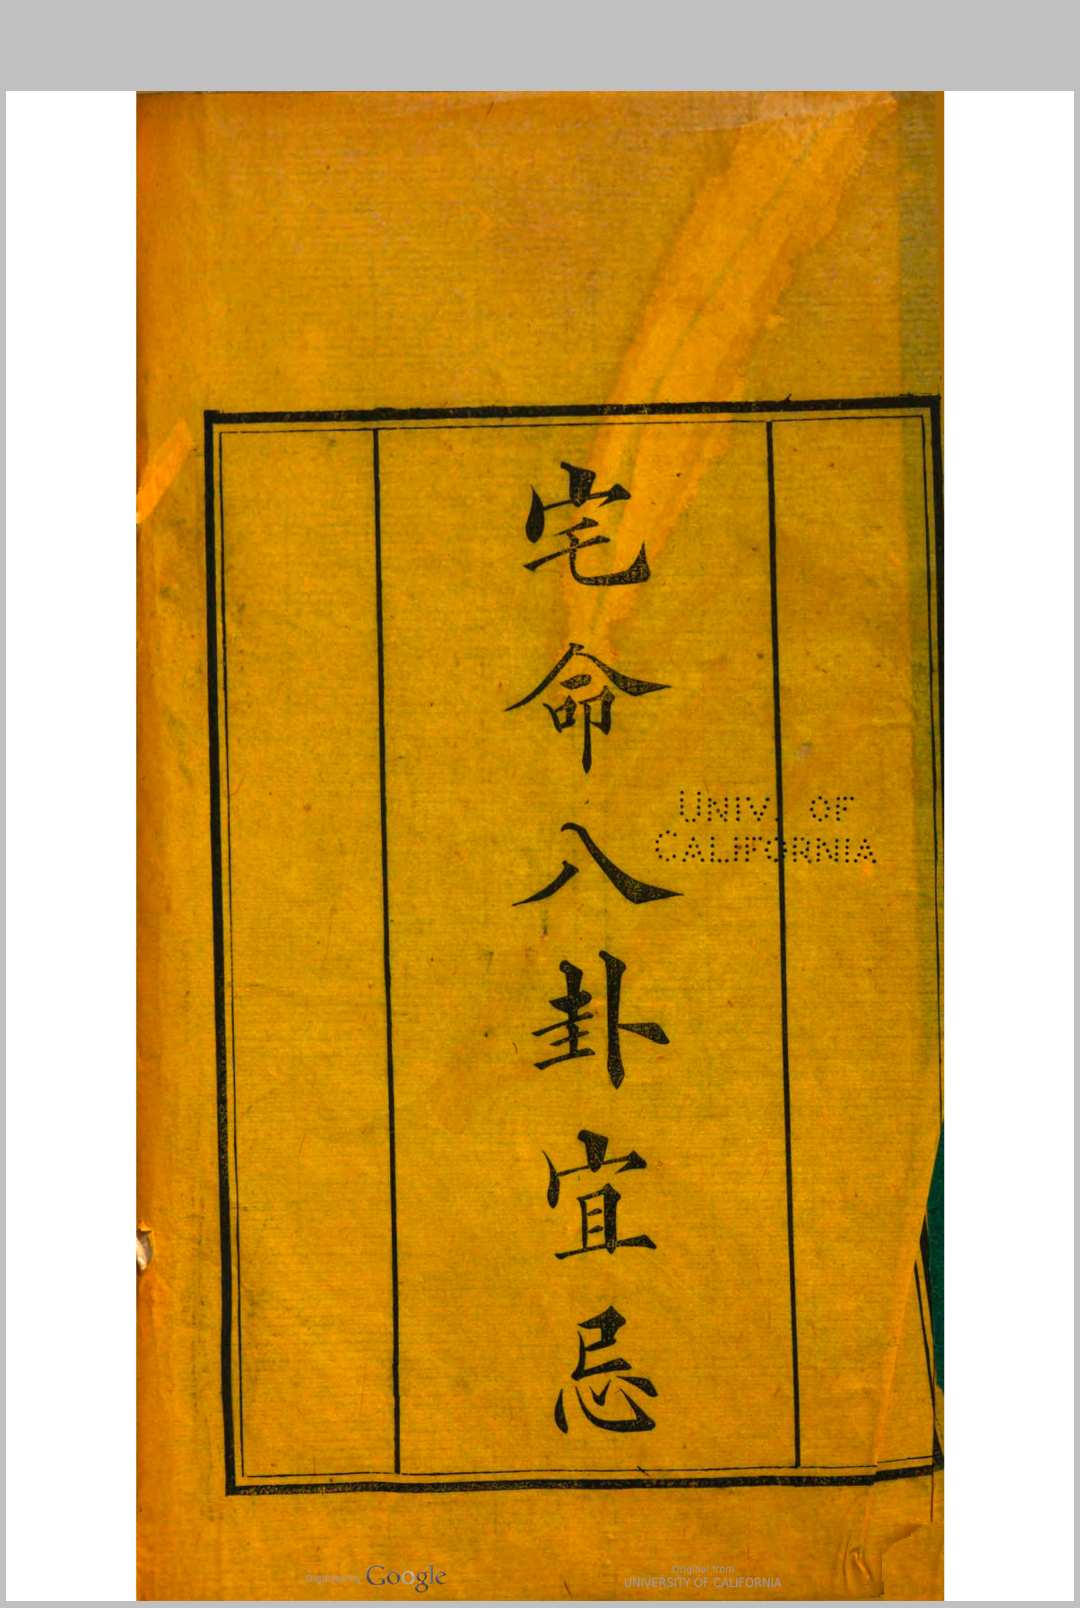 宅命八卦宜忌
UNIV. OF
CALIFORNIA
Digitized by Google
Original from
UNIVERSITY OF CALIFORNIA